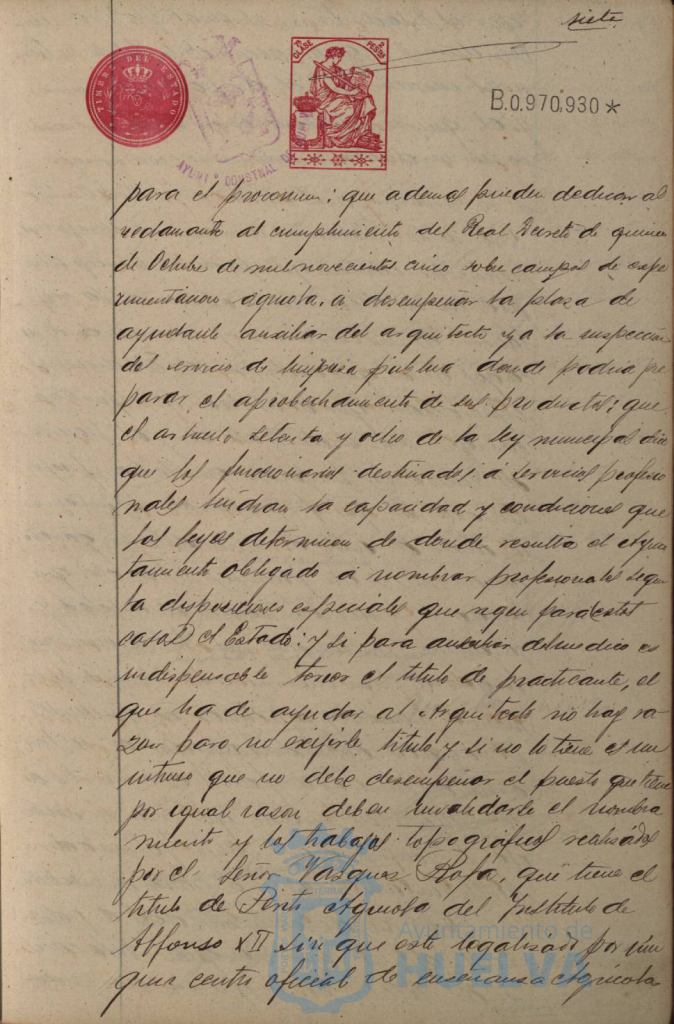 siete
TIMBRE DEL ESTADO
7ª CLASE PESETAS
B.0.970,930*
AYUNTº CONSTNAL DE
para el procomun; que ademas pueden dedicar al
reclamante al cumplimiento del Real Decreto de quince
de Octubre de mil novecientos cinco sobre campos de expe
rimentacion agricola, a desempeñar la plaza de
ayudante auxiliar del arquitecto y a la inspeccion
del servicio de limpieza publica donde podria pre
parar el aprobechamiento de sus productos; que
el articulo setenta y ocho de la ley municipal dice
que los funcionarios destinados á servicios profesio
nales tendran la capacidad y condiciones que
las leyes determinen de donde resulta el Ayun
tamiento obligado á nombrar profesionales segun
la disposiciones especiales que rigen para estos
casos el Estado: Y si para auxiliar del medico es
indispensable tener el titulo de practicante, el
que ha de ayudar al Arquitecto no hay ra
zon para no exijirle titulo y si no lo tiene es un
intruso que no debe desempeñar el puesto que tiene
por igual rason deben invalidarse el nombra
miento y los trabajos topográficos realisados
por el Señor Vasques Rofa, que tiene el
titulo de Perito Agricola del Instituto de
Alffonso XII sin que esté legalisado por nin
gun centro oficial de enseñansa Agricola
Ayuntamiento de
HUELVA